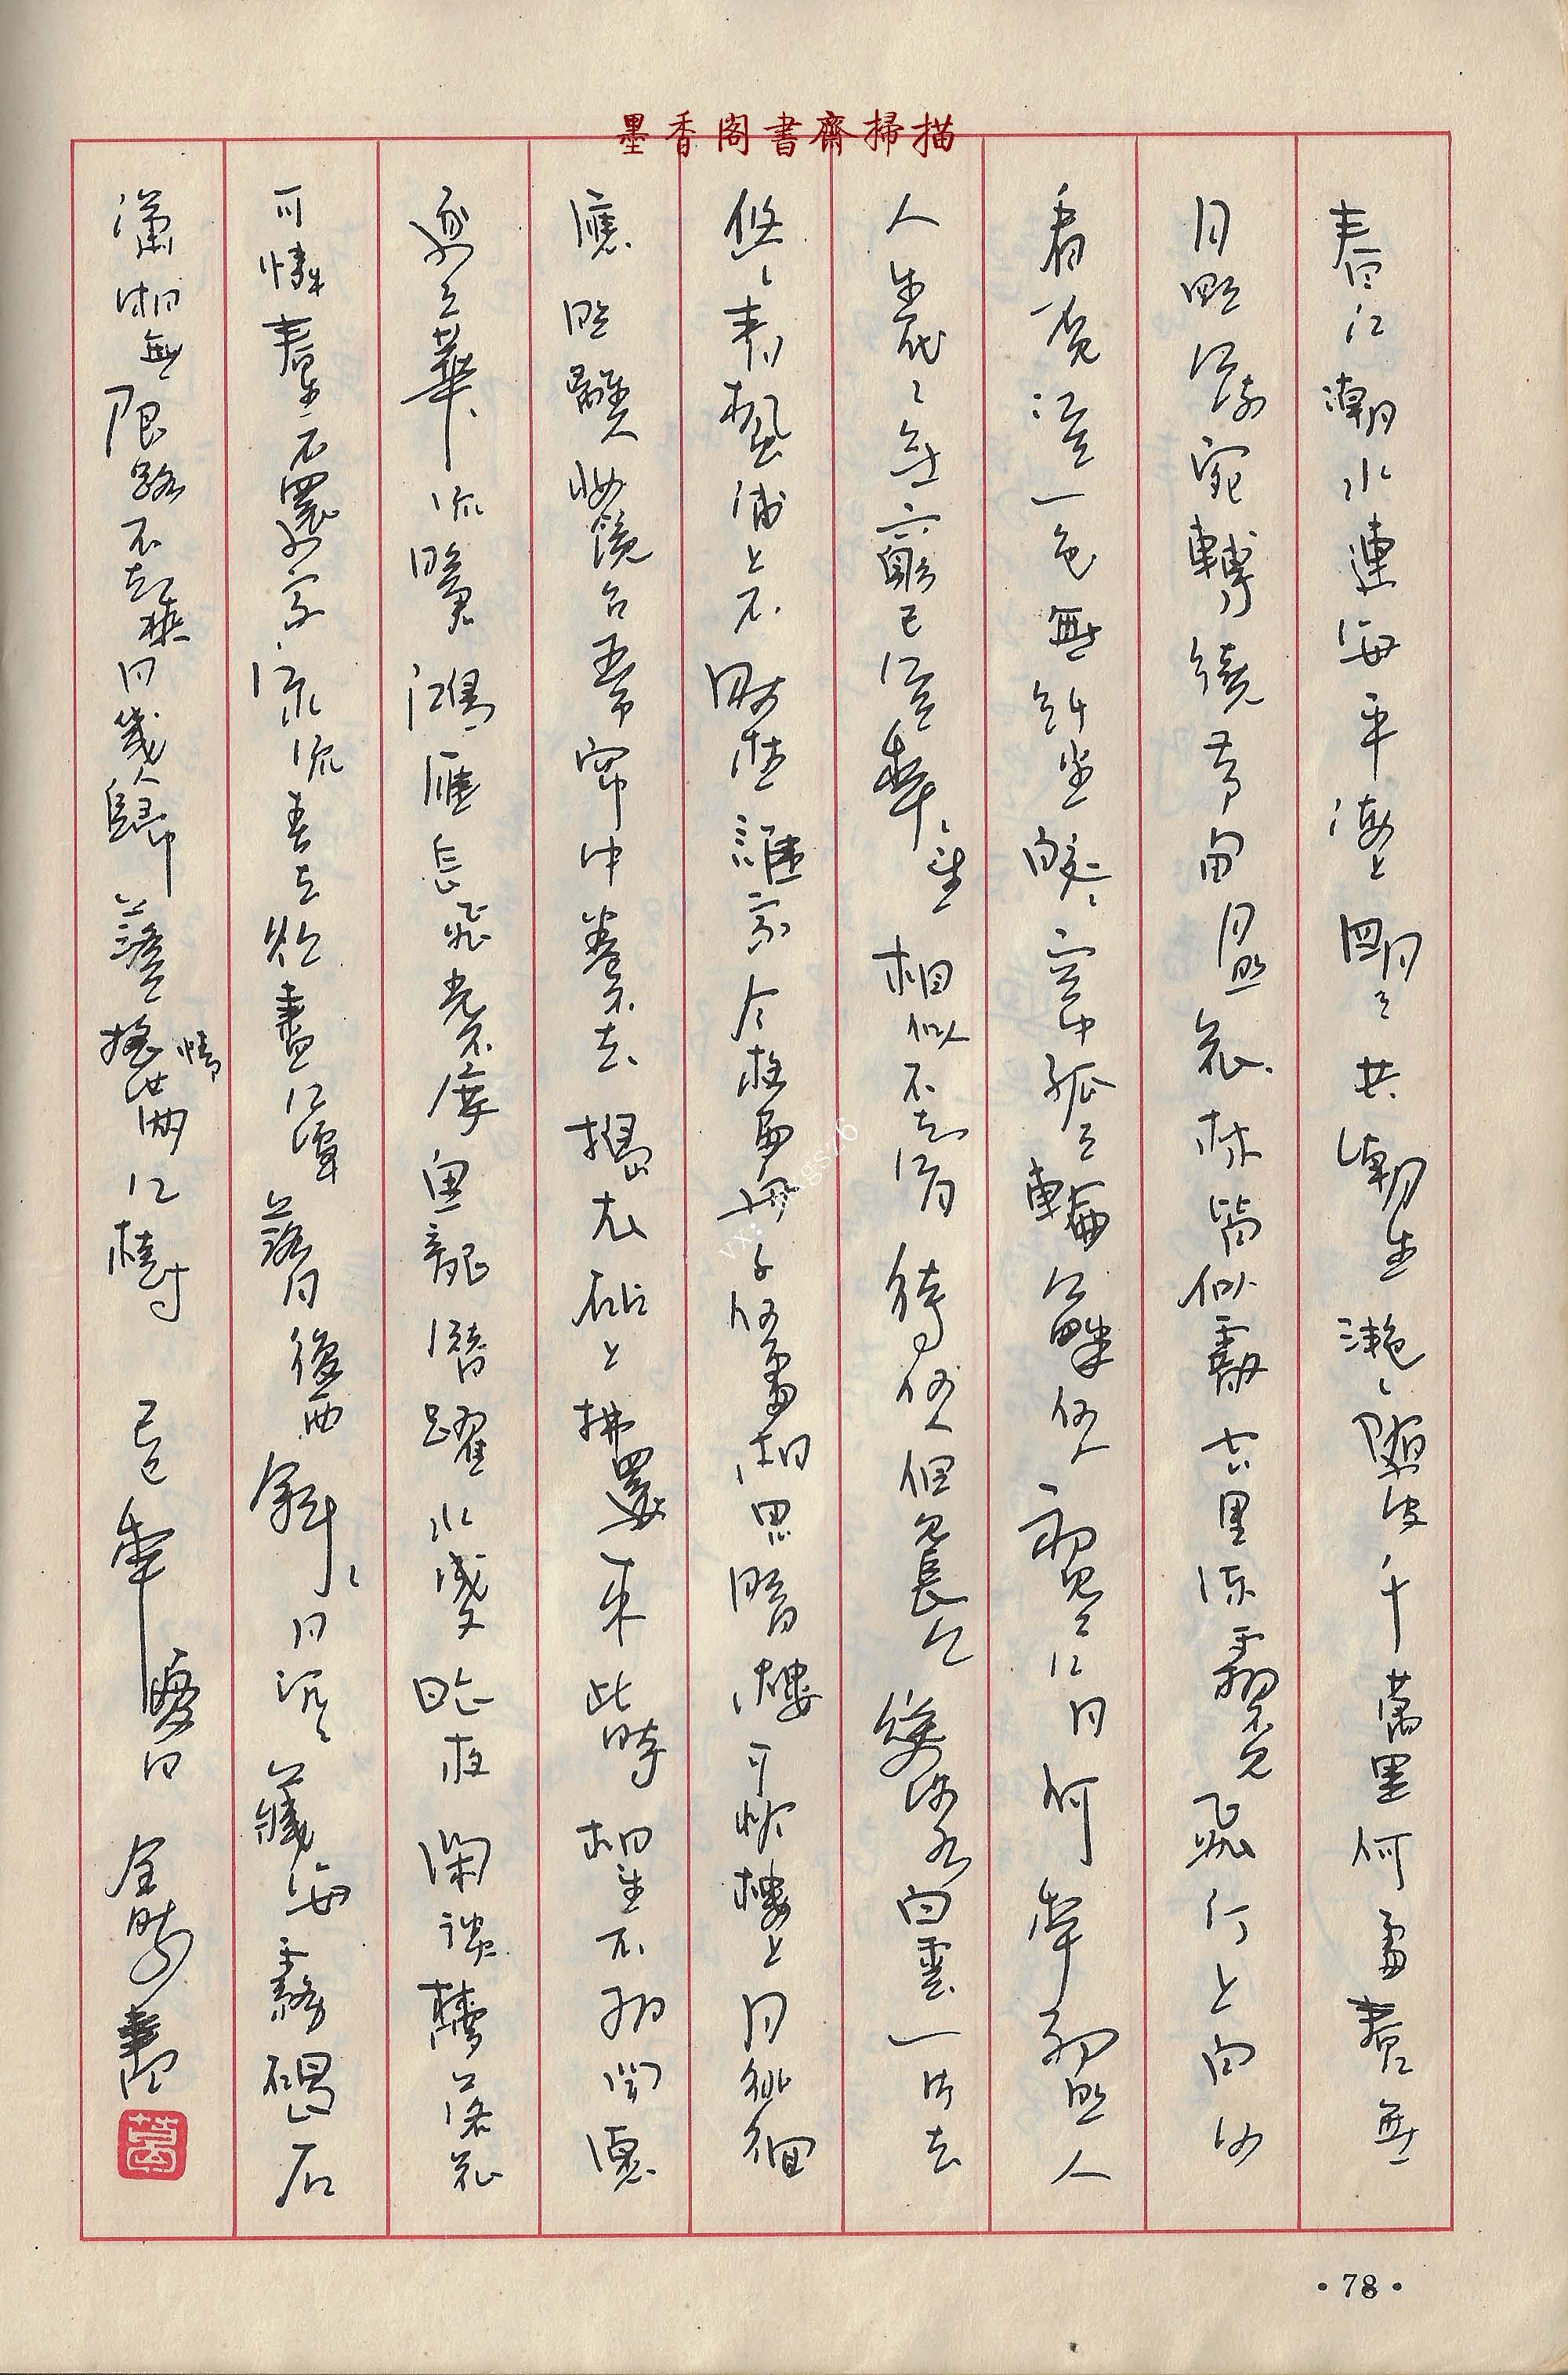 墨香閣書齋掃描
春江潮水連海平海上明月共潮生灧灧隨波千萬里何處春江無
月明江流宛轉繞芳甸月照花林皆似霰空里流霜不覺飛汀上白沙
看不見江天一色無纖塵皎皎空中孤月輪江畔何人初見月江月何年初照人
人生代代無窮已江月年年望相似不知江月待何人但見長江送流水白雲一片去
悠悠青楓浦上不勝愁誰家今夜扁舟子何處相思明月樓可憐樓上月徘徊
應照離人妝鏡台玉户帘中卷不去搗衣砧上拂還來此時相望不相聞願
逐月華流照君鴻雁長飛光不度魚龍潛躍水成文昨夜閑潭夢落花
可憐春半不還家江水流春去欲盡江潭落月復西斜斜月沉沉藏海霧碣石
瀟湘無限路不知乘月幾人歸落月搖情滿江樹 己巳年夏日
·78·